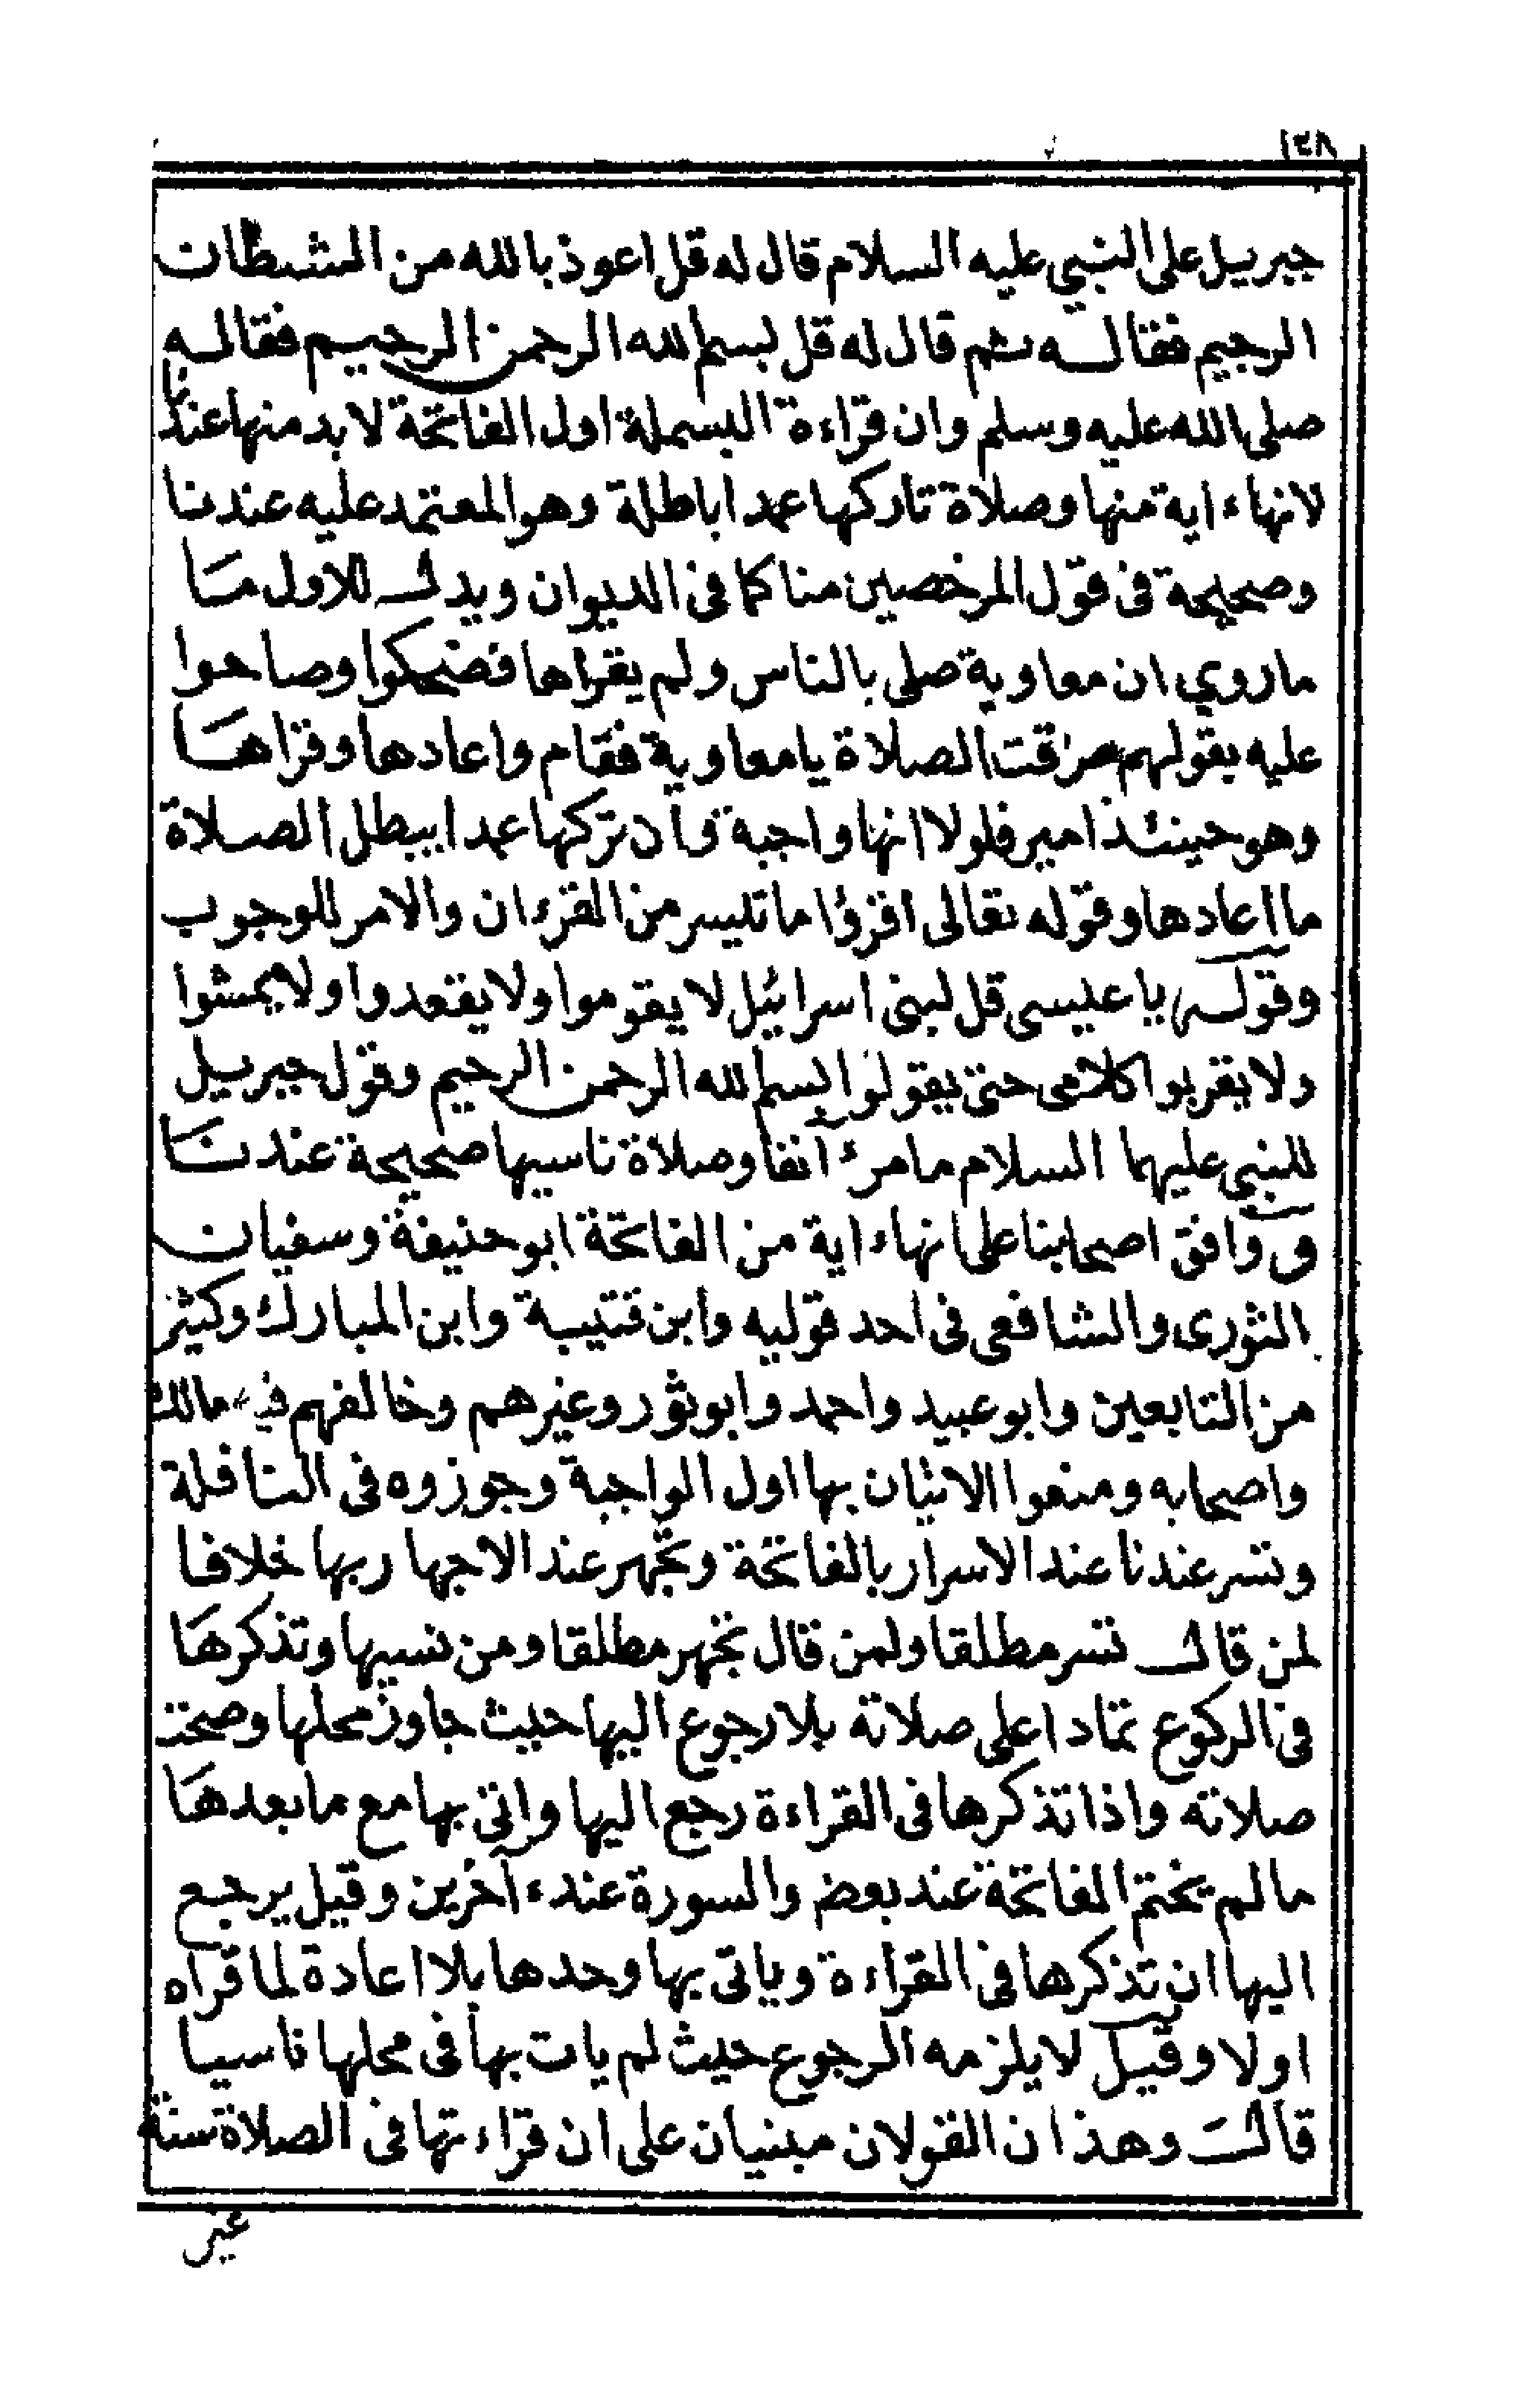 ١٢٨
جبريل على النبي عليه السلام قال له قل اعوذ بالله من الشيطان
الرجيم فقاله ثم قال له قل بسم الله الرحمن الرحيم فقاله
صلى الله عليه وسلم وان قراءة البسملة اول الفاتحة لا بد منها عندنا
لانها ءاية منها وصلاة تاركها عمدا باطلة وهو المعتمد عليه عندنا
وصحيحة في قول المرخصين منا كما في الديوان ويدل للاول ما
ما روي ان معاوية صلى بالناس ولم يقراها فضحكوا وصاحوا
عليه بقولهم سرقت الصلاة يا معاوية فقام واعادها وقراها
وهو حينئذ امير فلولا انها واجبة وان تركها عمدا يبطل الصلاة
ما اعادها وقوله تعالى اقرؤا ما تيسر من القرءان والامر للوجوب
وقوله يا عيسى قل لبني اسرائيل لا يقوموا ولا يقعدوا ولا يمشوا
ولا يقربوا كلامى حتى يقولوا بسم الله الرحمن الرحيم وقول جبريل
للنبي عليهما السلام ما مر ءانفا وصلاة ناسيها صحيحة عندنا
ووافق اصحابنا على انها ءاية من الفاتحة ابو حنيفة وسفيان
الثورى والشافعى فى احد قوليه وابن قتيبة وابن المبارك وكثير
من التابعين وابو عبيد واحمد وابو ثور وغيرهم وخالفهم فيه مالك
واصحابه ومنعوا الاتيان بها اول الواجبة وجوزوه فى النافلة
وتسر عندنا عند الاسرار بالفاتحة وتجهر عند الاجهار بها خلافا
لمن قال تسر مطلقا ولمن قال تجهر مطلقا ومن نسيها وتذكرها
فى الركوع تمادا على صلاته بلا رجوع اليها حيث جاوز محلها وصحت
صلاته واذا تذكرها فى القراءة رجع اليها واتى بها مع ما بعدها
ما لم يختم الفاتحة عند بعض والسورة عند ءاخرين وقيل يرجع
اليها ان تذكرها فى القراءة وياتى بها وحدها بلا اعادة لما قراه
اولا وقيل لا يلزمه الرجوع حيث لم يات بها فى محلها ناسيا
قال وهذان القولان مبنيان على ان قراءتها فى الصلاة سنة
غير